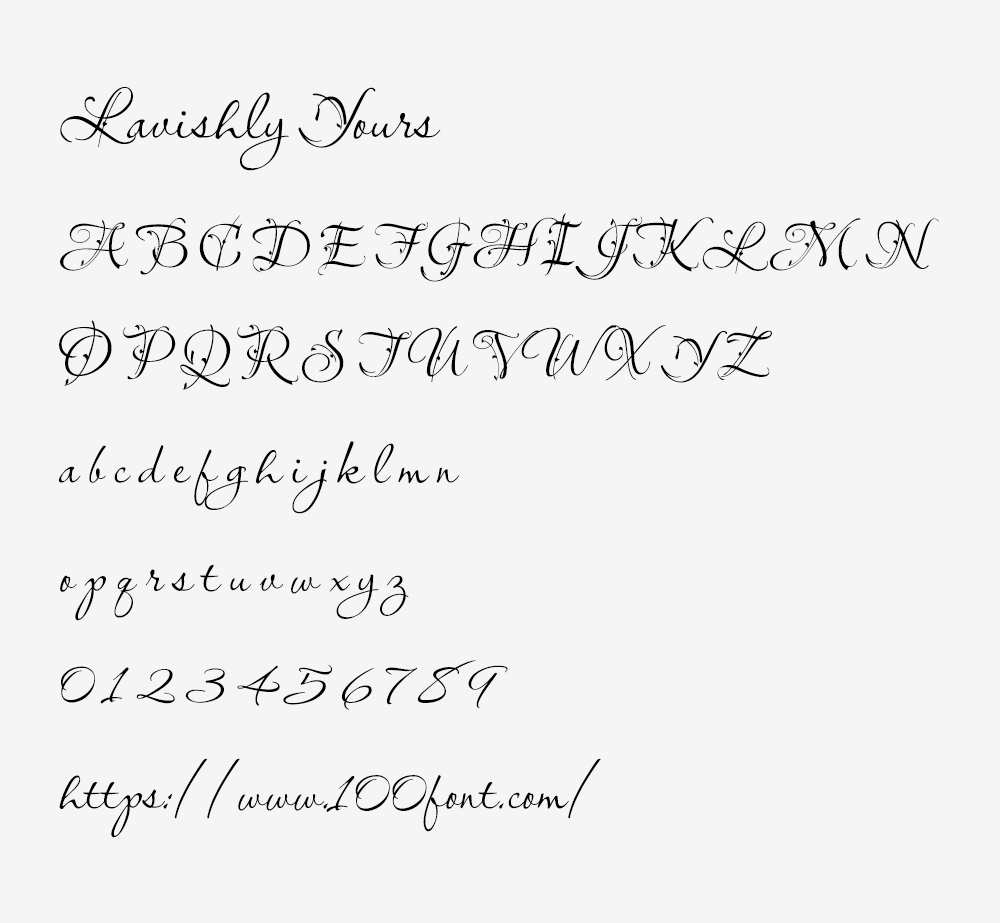 Lavishly Yours
A B C D E F G H I J K L M N
O P Q R S T U V W X Y Z
a b c d e f g h i j k l m n
o p q r s t u v w x y z
0 1 2 3 4 5 6 7 8 9
https://www.100font.com/